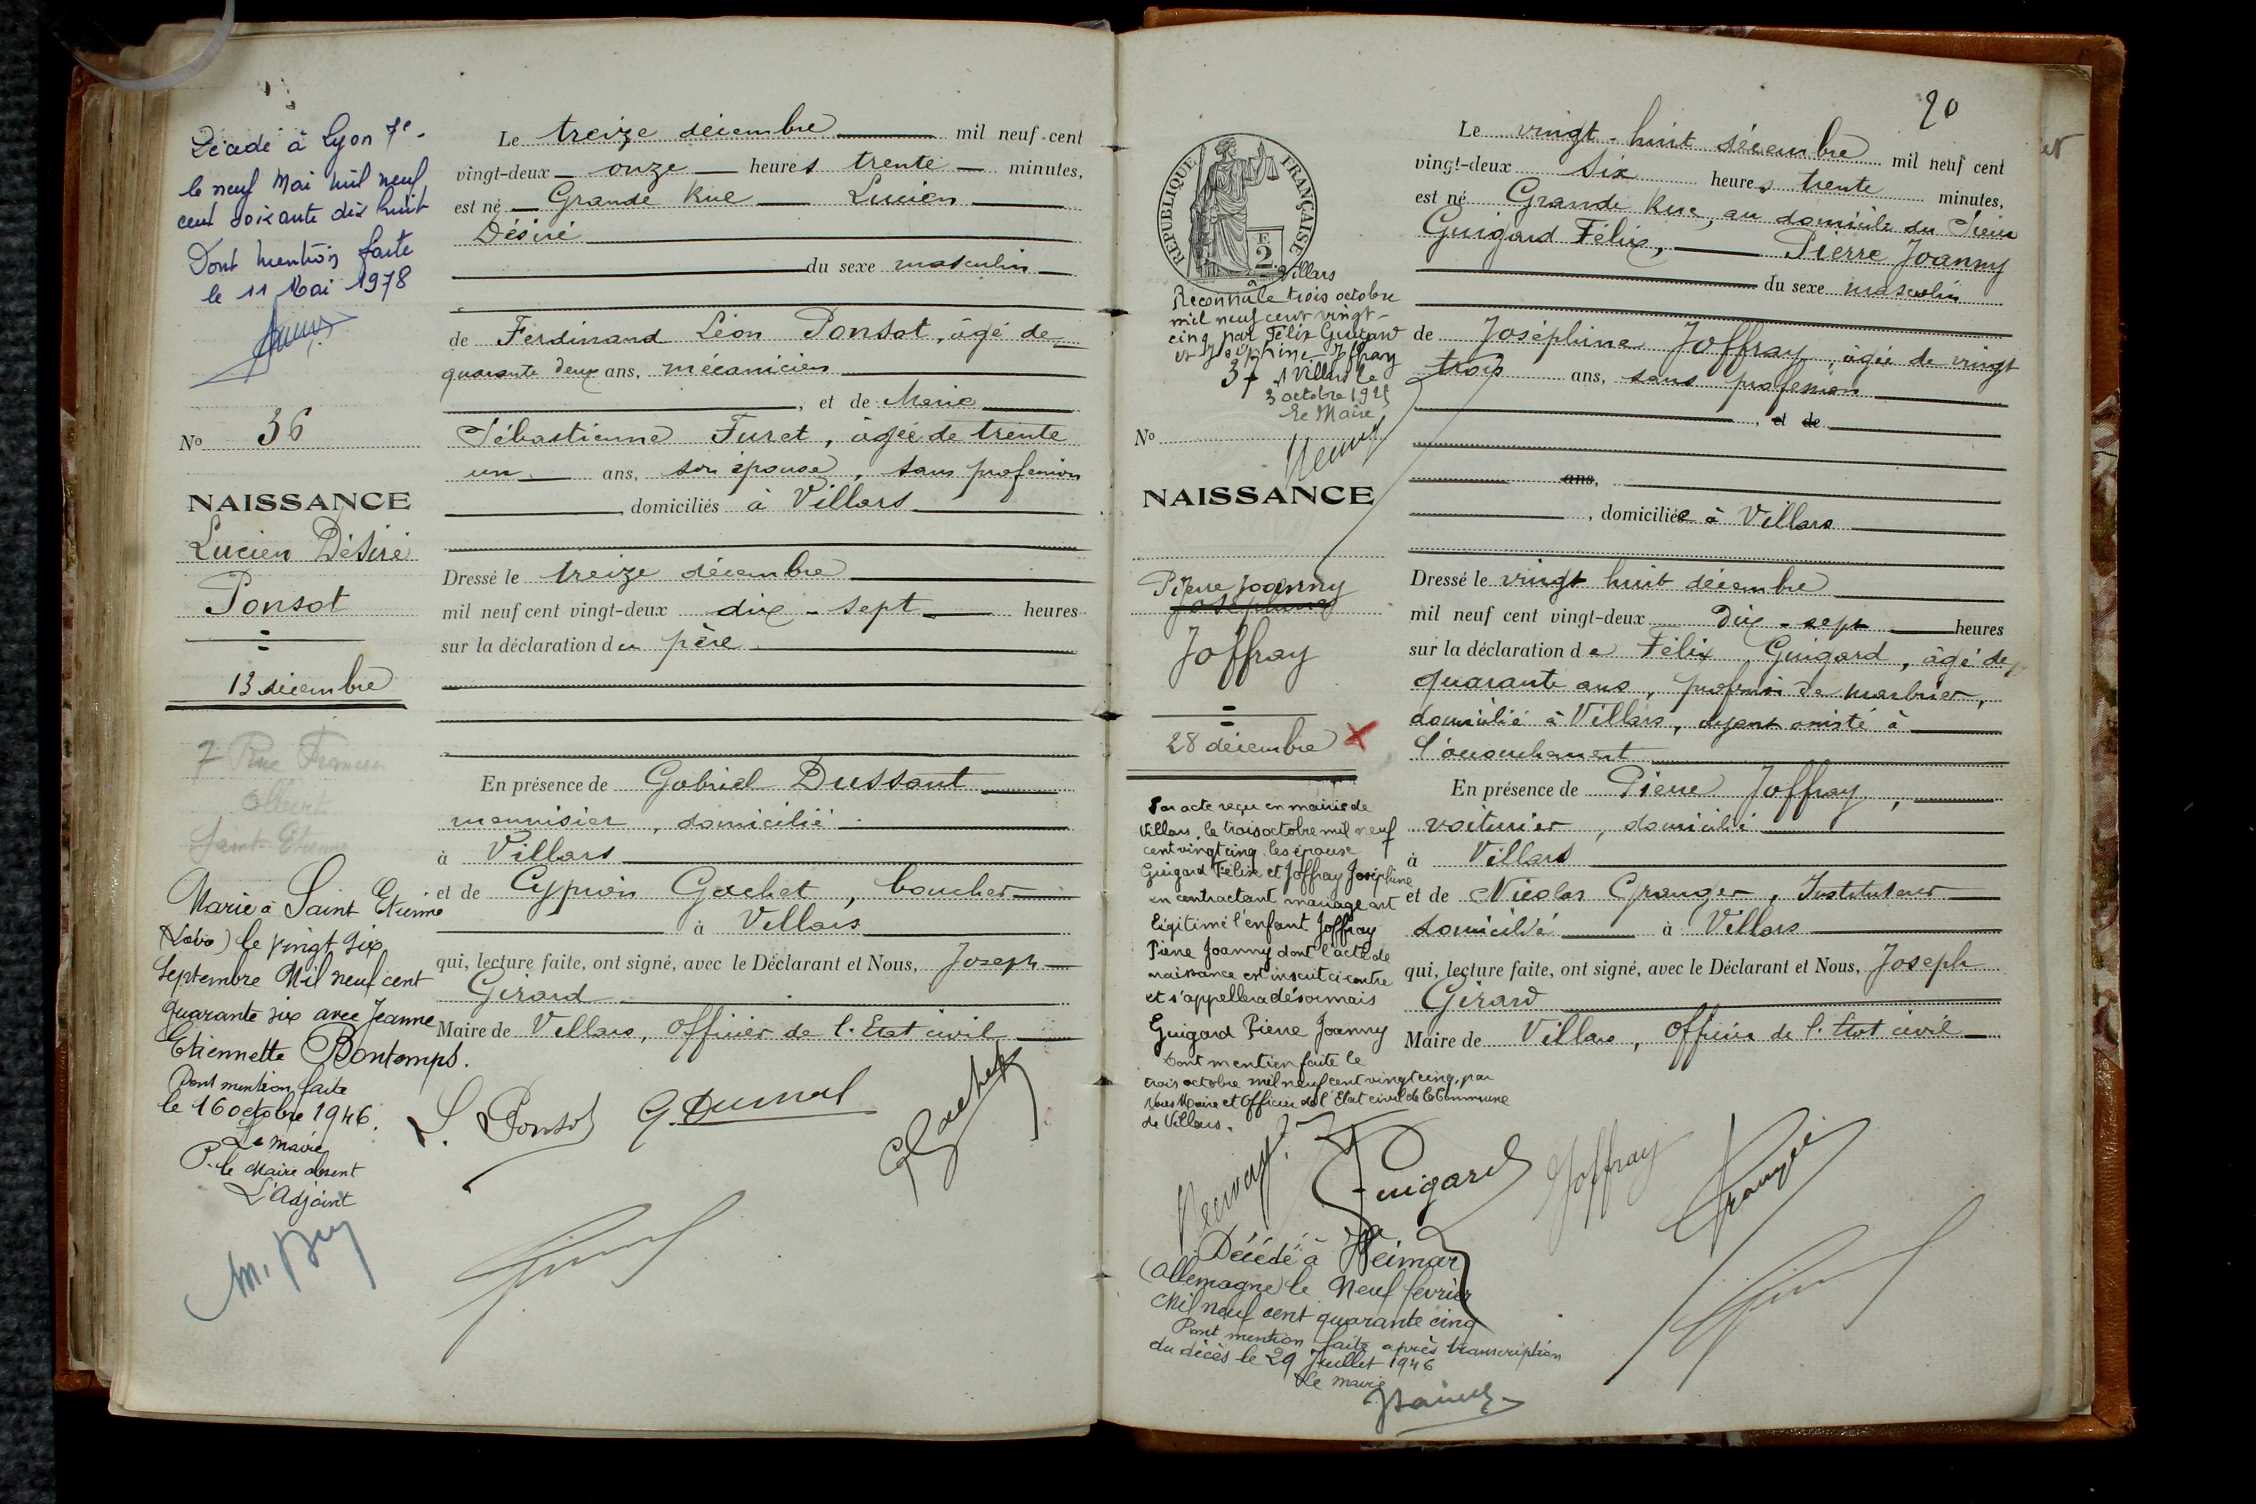 Décédé à Lyon 7e.
le neuf Mai mil neuf
cent soixante dix huit
Dont mention faite
le 11 Mai 1978
No 36
NAISSANCE
Lucien Désiré
Ponsot
13 décembre
7 Rue Francis
Saint-Etienne
Marié à Saint Etienne
(Loire) le vingt six
Septembre Mil neuf cent
quarante six avec Jeanne
Etiennette Bontemps.
Dont mention faite
le 16 octobre 1946.
Le maire
P. le Maire absent
L'Adjoint
Le treize décembre mil neuf cent
vingt-deux onze heures trente minutes,
est né Grande Rue Lucien
Désiré
du sexe masculin
de Ferdinand Léon Ponsot, âgé de
quarante deux ans, mécanicien
, et de Marie
Sébastienne Furet, âgée de trente
un ans, son épouse, sans profession
domiciliés à Villars
Dressé le treize décembre
mil neuf cent vingt-deux dix-sept heures
sur la déclaration du père
En présence de Gabriel Dussaut
menuisier, domicilié
à Villars
et de Cyprien Gachet, boucher
à Villars
qui, lecture faite, ont signé, avec le Déclarant et Nous, Joseph
Girard
Maire de Villars, officier de l'Etat civil
L. Ponsot
Gachet
20
RÉPUBLIQUE FRANÇAISE
2
Villars
Reconnu le trois octobre
mil neuf cent vingt-
cinq par Félix Guigard
et Joséphine Joffray
37 A Villars le
3 octobre 1925
Le Maire
No
NAISSANCE
Pierre Joanny
Joséphine
Joffray
28 décembre
Par acte reçu en mairie de
Villars, le trois octobre mil neuf
cent vingt cinq les époux
Guigard Félix et Joffray Joséphine
en contractant mariage ont
légitimé l'enfant Joffray
Pierre Joanny dont l'acte de
naissance est inscrit ci-contre
et s'appellera désormais
Guigard Pierre Joanny
Dont mention faite le
trois octobre mil neuf cent vingt cinq, par
Nous Maire et Officier de l'Etat civil de la Commune
de Villars.
Le vingt-huit décembre mil neuf cent
vingt-deux six heures trente minutes,
est né Grande Rue, au domicile du Sieur
Guigard Félix, Pierre Joanny
du sexe masculin
de Joséphine Joffray, âgée de vingt
trois ans, sans profession
, et de
ans,
, domiciliée à Villars
Dressé le vingt huit décembre
mil neuf cent vingt-deux dix-sept heures
sur la déclaration de Félix Guigard, âgé de
quarante ans, profession de marbrier,
domicilié à Villars, ayant assisté à
l'accouchement
En présence de Pierre Joffray,
voiturier, domicilié
à Villars
et de Nicolas Granger, Instituteur
domicilié à Villars
qui, lecture faite, ont signé, avec le Déclarant et Nous, Joseph
Girard
Maire de Villars, Officier de l'Etat civil
Guigard
Joffray
Granger
Décédé à Weimar
(Allemagne) le Neuf février
Mil neuf cent quarante cinq
Dont mention faite après transcription
du décès le 29 Juillet 1946
Le maire